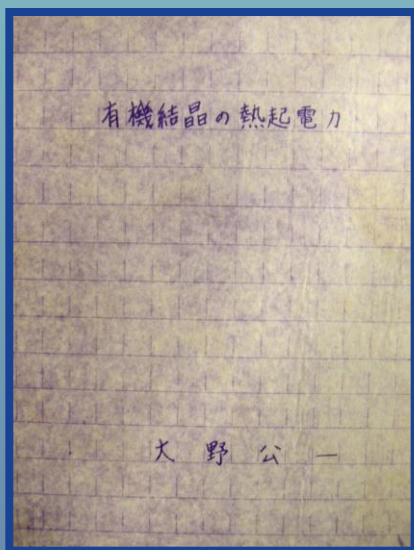 有機結晶の熱起電力
大野公一